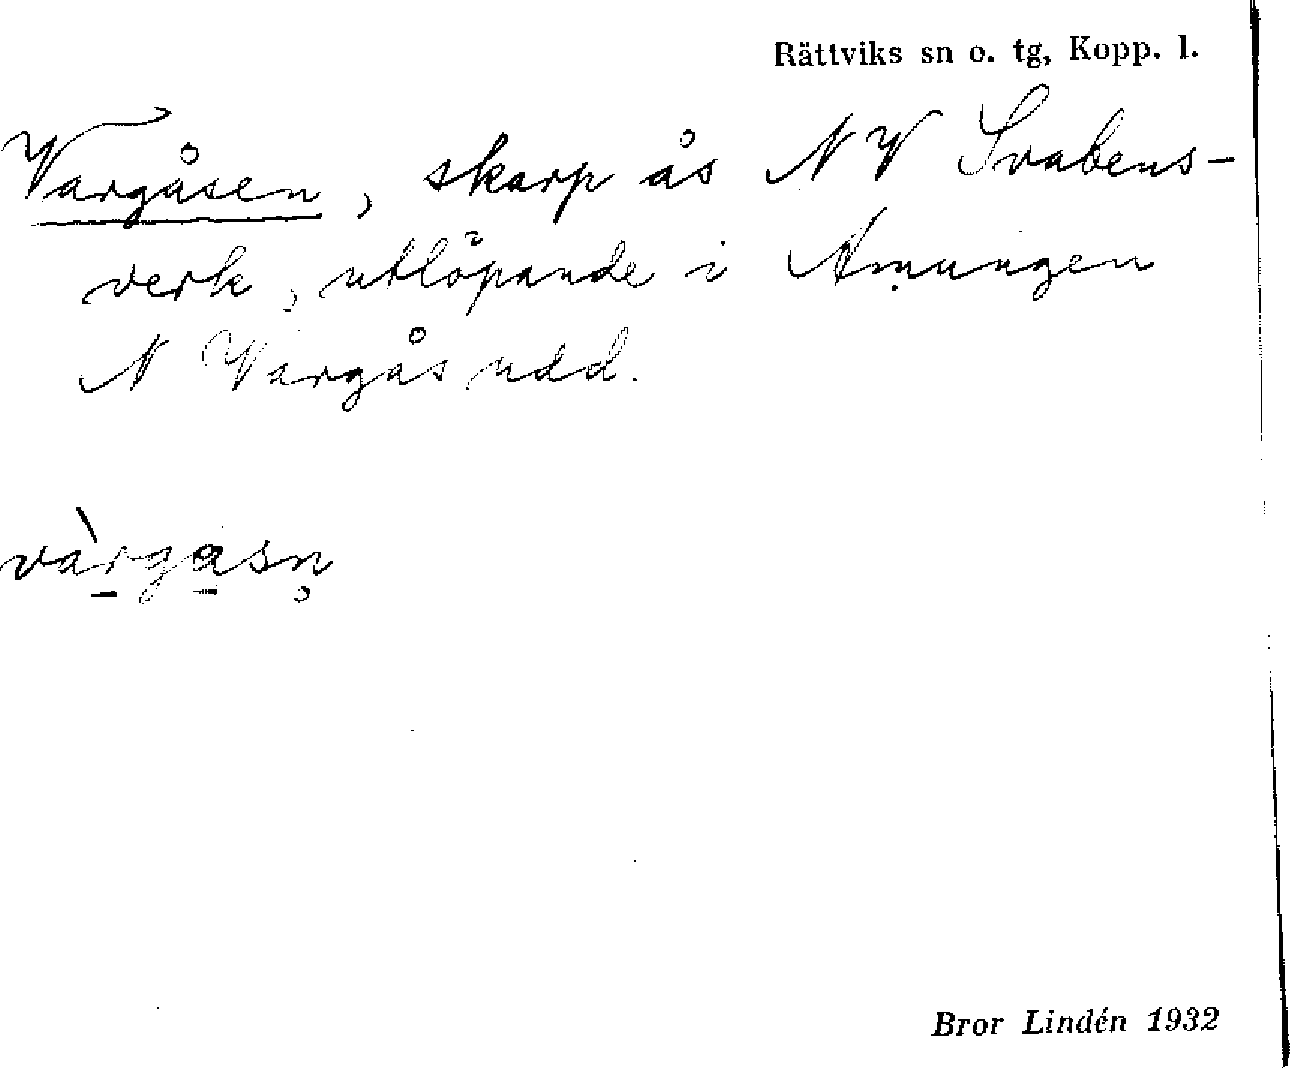 Rättviks sn o. tg, Kopp. l.
Vargåsen, skarp ås NV Svabens-
verk, utlöpande i Amungen
N Vargåsudd.
vàrgasn̥
Bror Lindén 1932